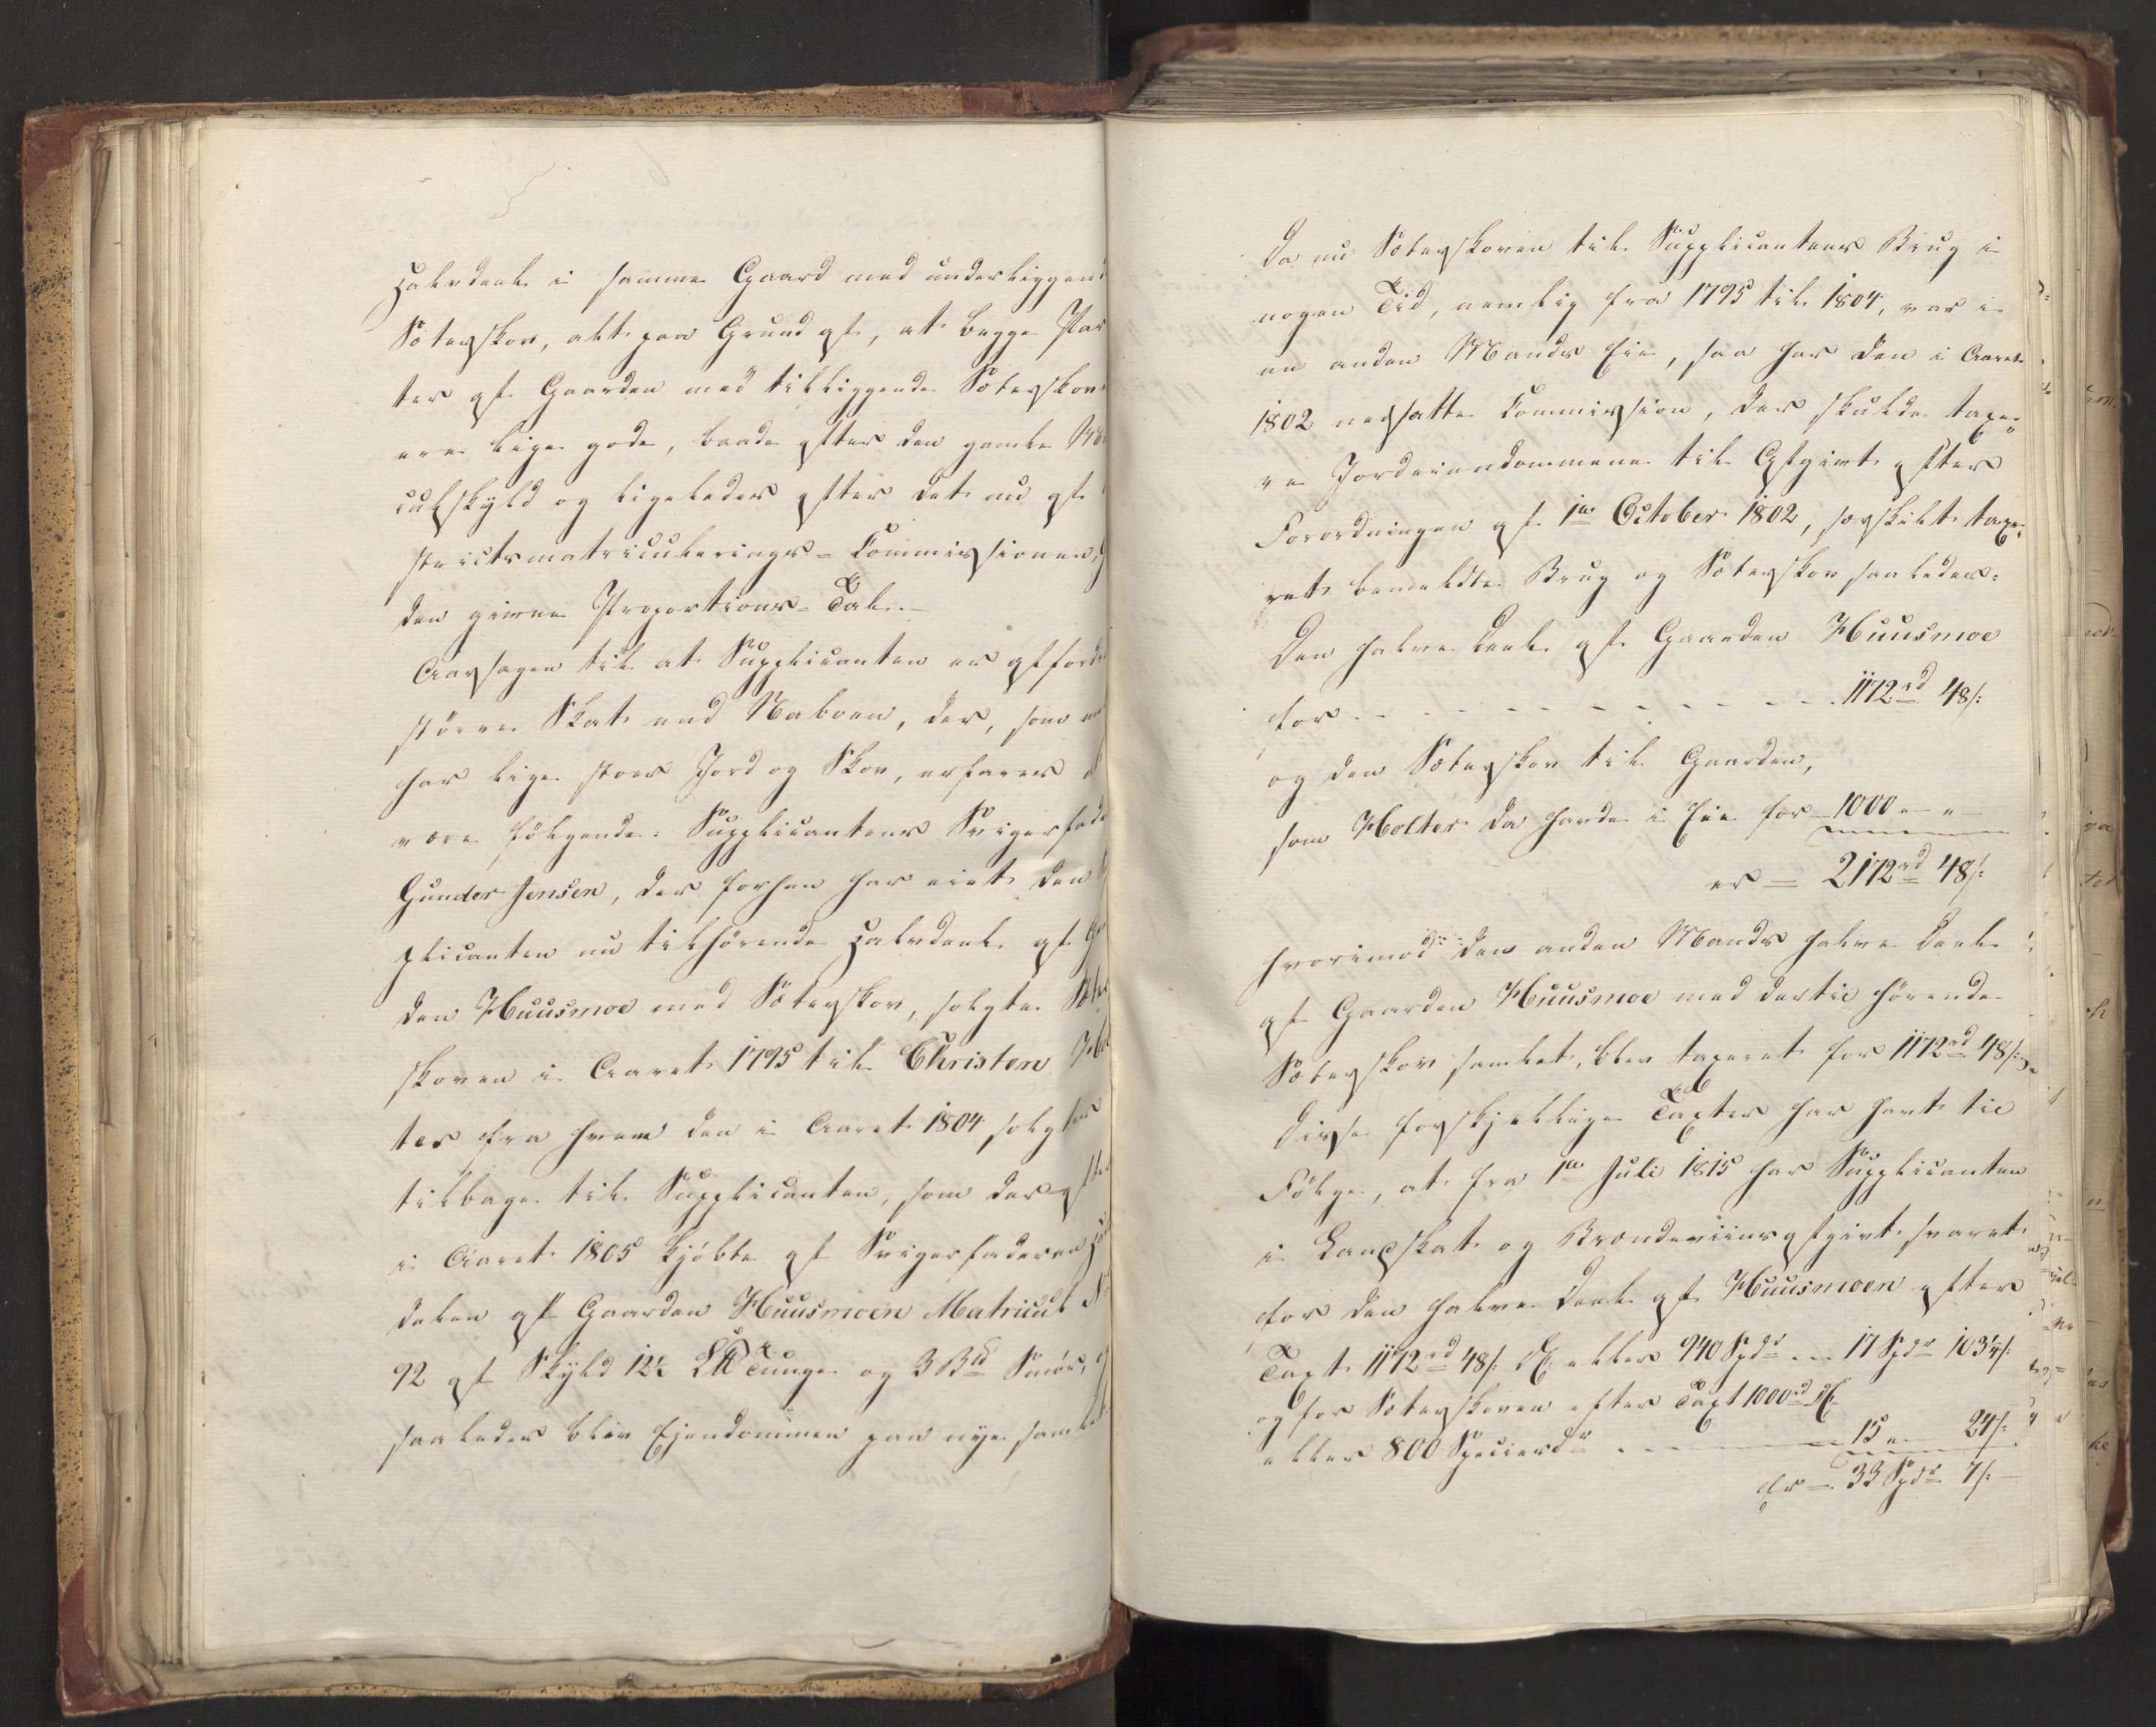 Halvdeel i samme Gaard med underliggend
Sæterskov, alt paa Grund af, at begge Par
ter af Gaarden med tilliggende Sæterskov
ere lige gode, baade efter den gamle Ma
culskyld og ligeledes efter det nu af
strictsmatriculerings-Commissionen,
den givne Proportions-Tal.-
Aarsagen til at Supplicanten er affordr
større Skat end Naboen, der, som
har lige stoer Jord og Skov, erfares
være følgende: Supplicantens Svigerfade
Gunder Jensen, der forhen har eiet den
plicanten nu tilhørende Halvdeel af Ga
den Huusmoe med Sæterskov, solgte Sæter
skoven i Aaret 1795 til Christen Hol
ter fra hvem den i Aaret 1804 solgtes
tilbage til Supplicanten, som der efter
i Aaret 1805 kjøbte af Svigerfaderen Hal
delen af Gaarden Huusmoen Matricul No
92 af Skyld 12½ L℔ Tunge og 3 Bd Smør,
saaledes blev Ejendommen paa nye samlet.
Da nu Sæterskoven til Supplicantens Brug i
nogen Tid, nemlig fra 1795 til 1804, var i
en anden Mands Eie, saa har den i Aaret
1802 nedsatte Commission, der skulde taxe-
re Jordeiendommene til Afgivt efter
Forordningen af 1te October 1802, særskilt taxe-
ret bemeldte Brug og Sæterskov saaledes:
Den halve Deel af Gaarden Huusmoe
for - - - - - - - - - - - - 1172rd 48/:
og den Sæterskov til Gaarden,
som Holter da havde i Eie for - 1000 " "
er = 2172rd 48/:
hvorimod den anden Mands halve Deel
af Gaarden Huusmoe med dertil hørende
Sæterskov samlet, blev taxeret for 1172rd 48/:
Disse forskjellige Taxter har havt til
Følge, at fra 1te Juli 1815 har Supplicanten
i Landskat og Brændeviinsafgivt svaret
for den halve Deel af Huusmoen efter
Taxt 1172rd 48/: DC. eller 940 Spdr - - 17 Spdr 103¼/:
og for Sæterskoven efter Taxt 1000rd DC
eller 800 Speciesdr - - - - - - 15 " 24/:
Er = 33 Spdr 7/: -